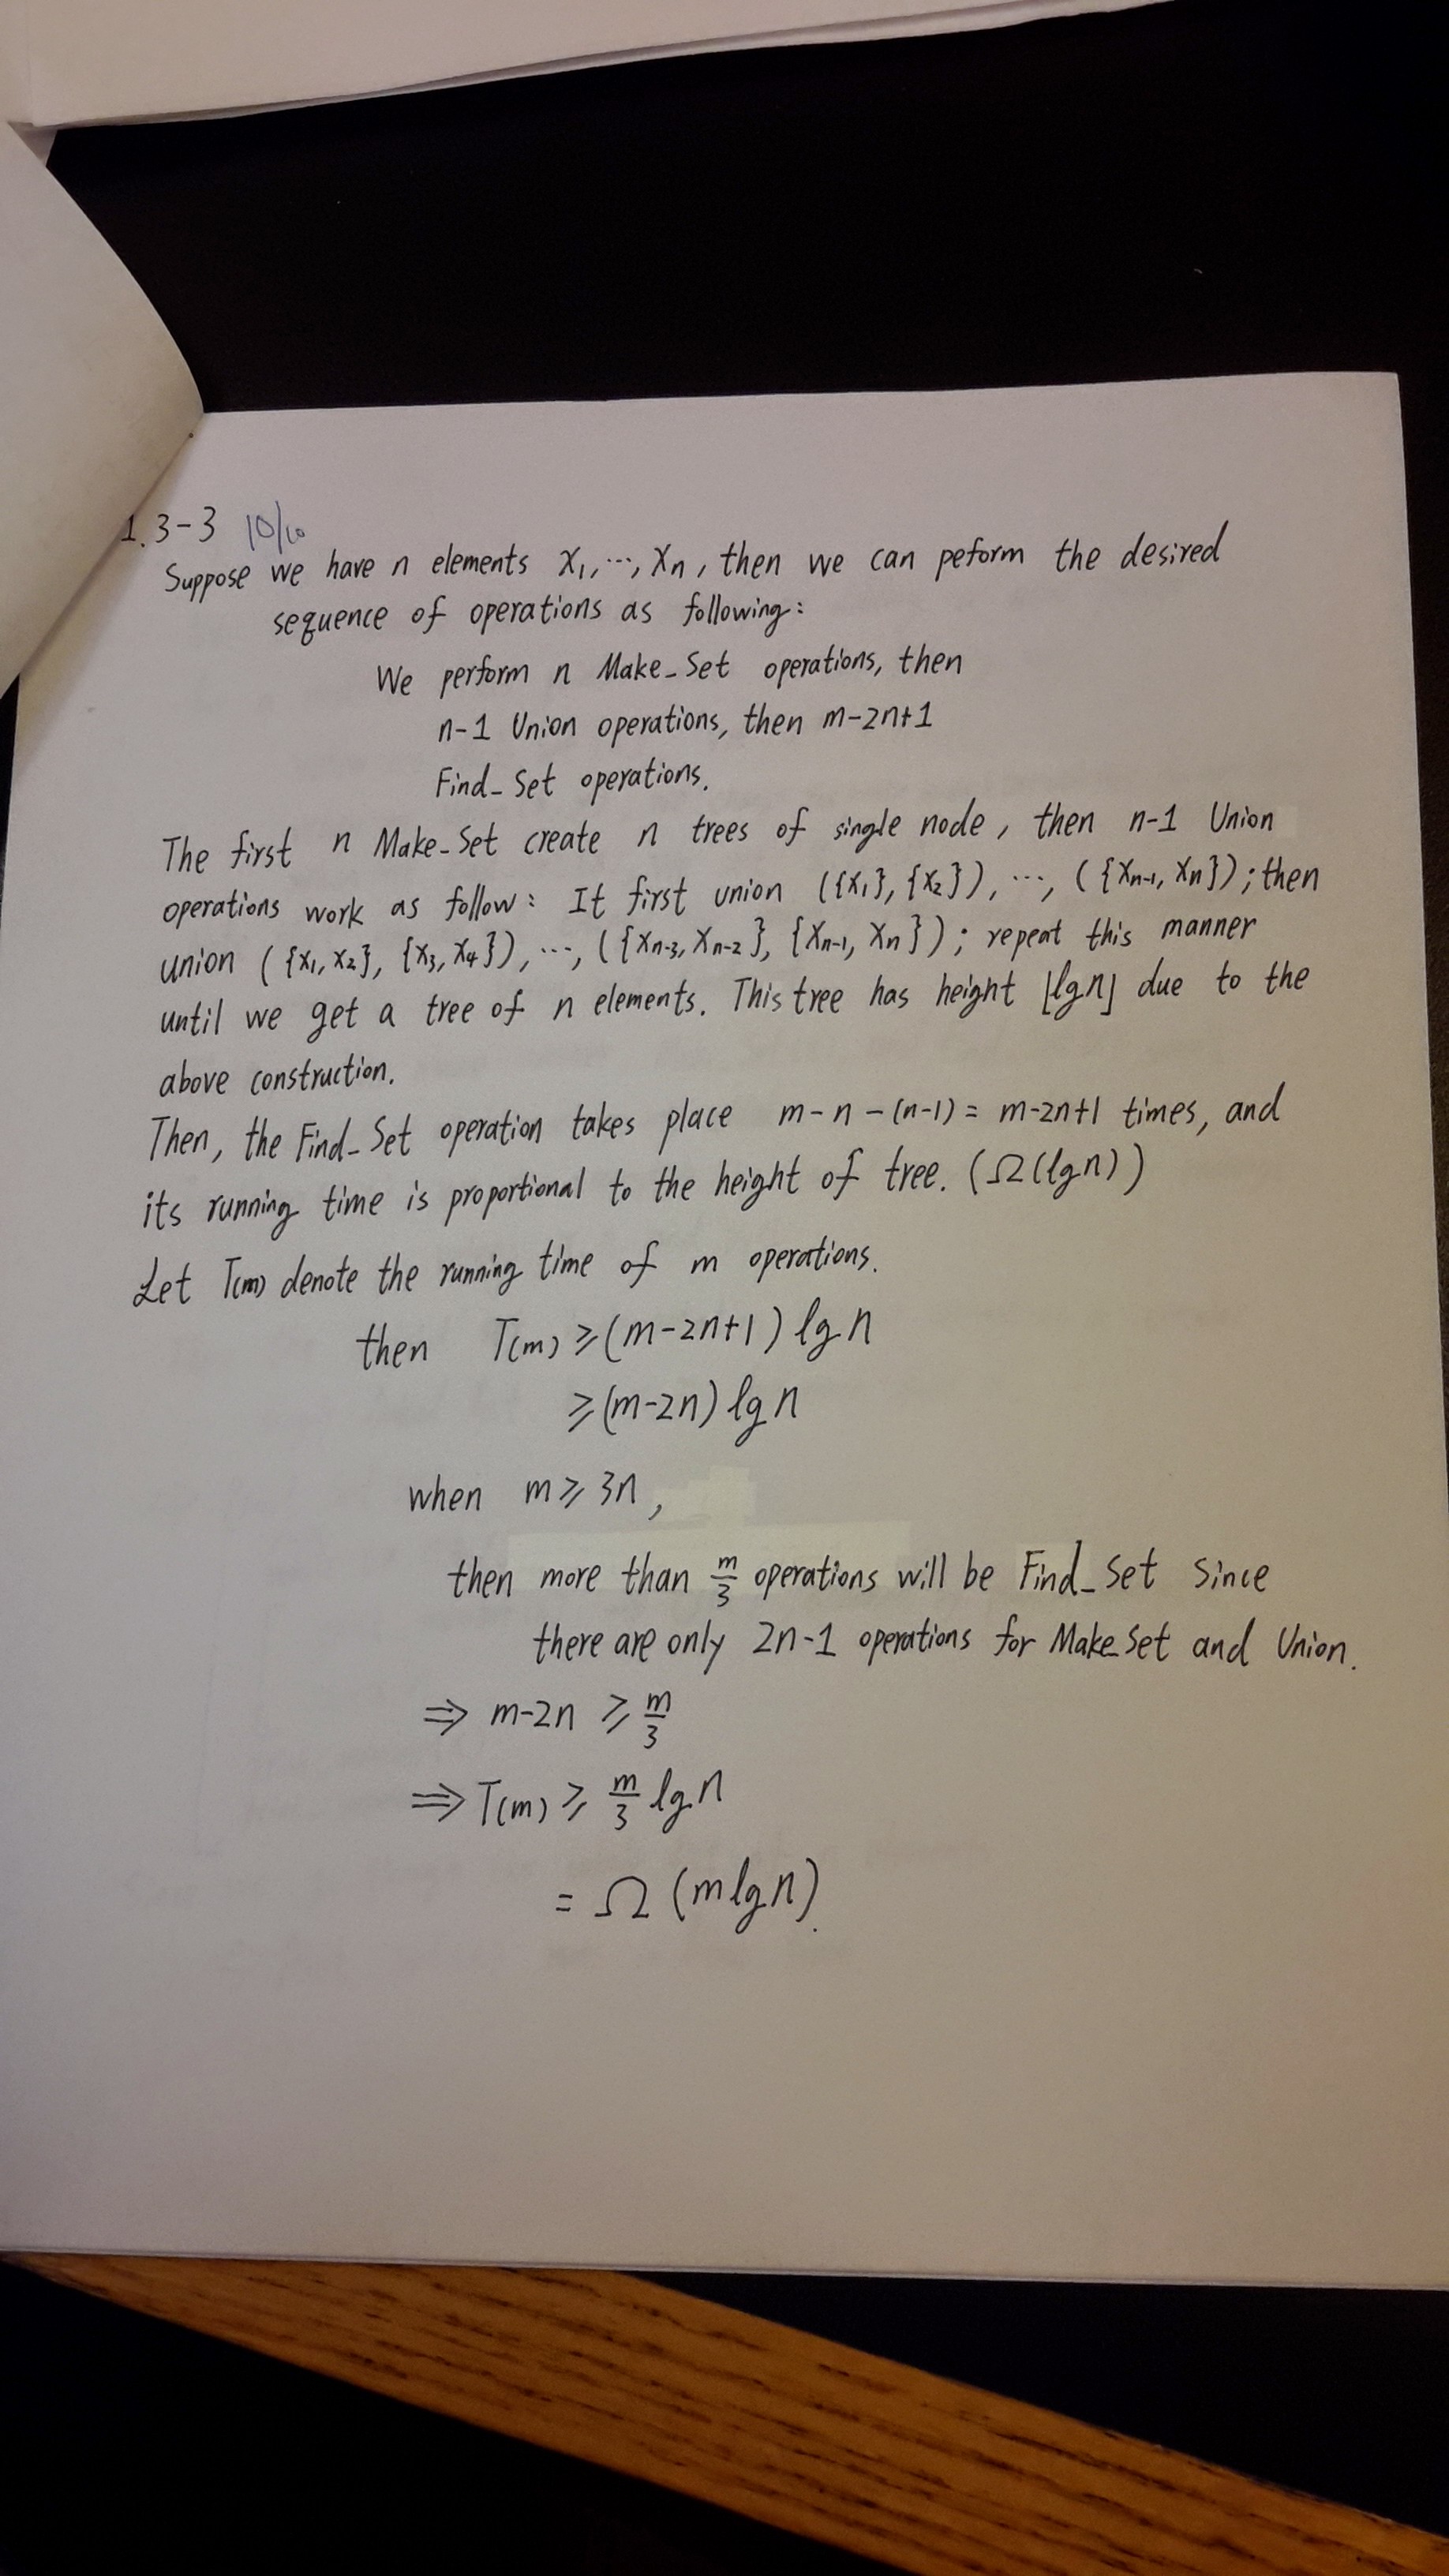 1.3-3 10/10
Suppose we have n elements X₁, ⋯, Xₙ, then we can peform the desired
sequence of operations as following:
We perform n Make_Set operations, then
n-1 Union operations, then m-2n+1
Find_Set operations.
The first n Make_Set create n trees of single node, then n-1 Union
operations work as follow: It first union ({X₁}, {X₂}), ⋯, ({Xₙ₋₁, Xₙ}); then
union ({X₁, X₂}, {X₃, X₄}), ⋯, ({Xₙ₋₃, Xₙ₋₂}, {Xₙ₋₁, Xₙ}); repeat this manner
until we get a tree of n elements. This tree has height ⌊lgn⌋ due to the
above construction.
Then, the Find_Set operation takes place m-n-(n-1) = m-2n+1 times, and
its running time is proportional to the height of tree. (Ω(lgn))
Let T(m) denote the running time of m operations.
then T(m) ≥ (m-2n+1) lg n
≥ (m-2n) lg n
when m ≥ 3n,
then more than m/3 operations will be Find_Set since
there are only 2n-1 operations for Make_Set and Union.
⇒ m-2n ≥ m/3
⇒ T(m) ≥ m/3 lg n
= Ω (m lg n).